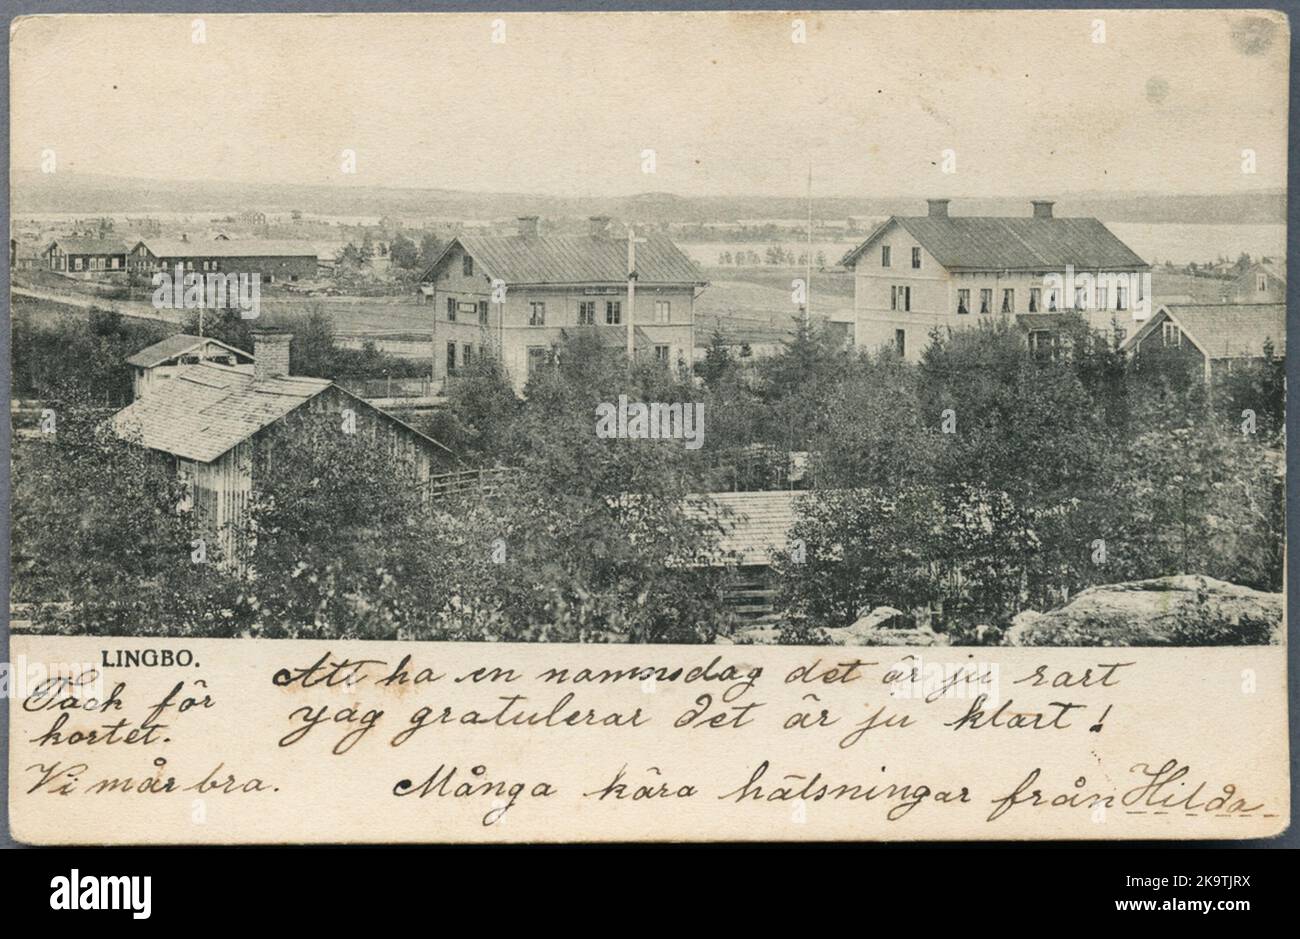 LINGBO.
Tack för
kortet.
Vi mår bra.
Att ha en namnsdag det är ju rart
yag gratulerar det är ju klart!
Många kära hälsningar från Hilda
a
alamy
Image ID: K9TJRX
www.alamy.com